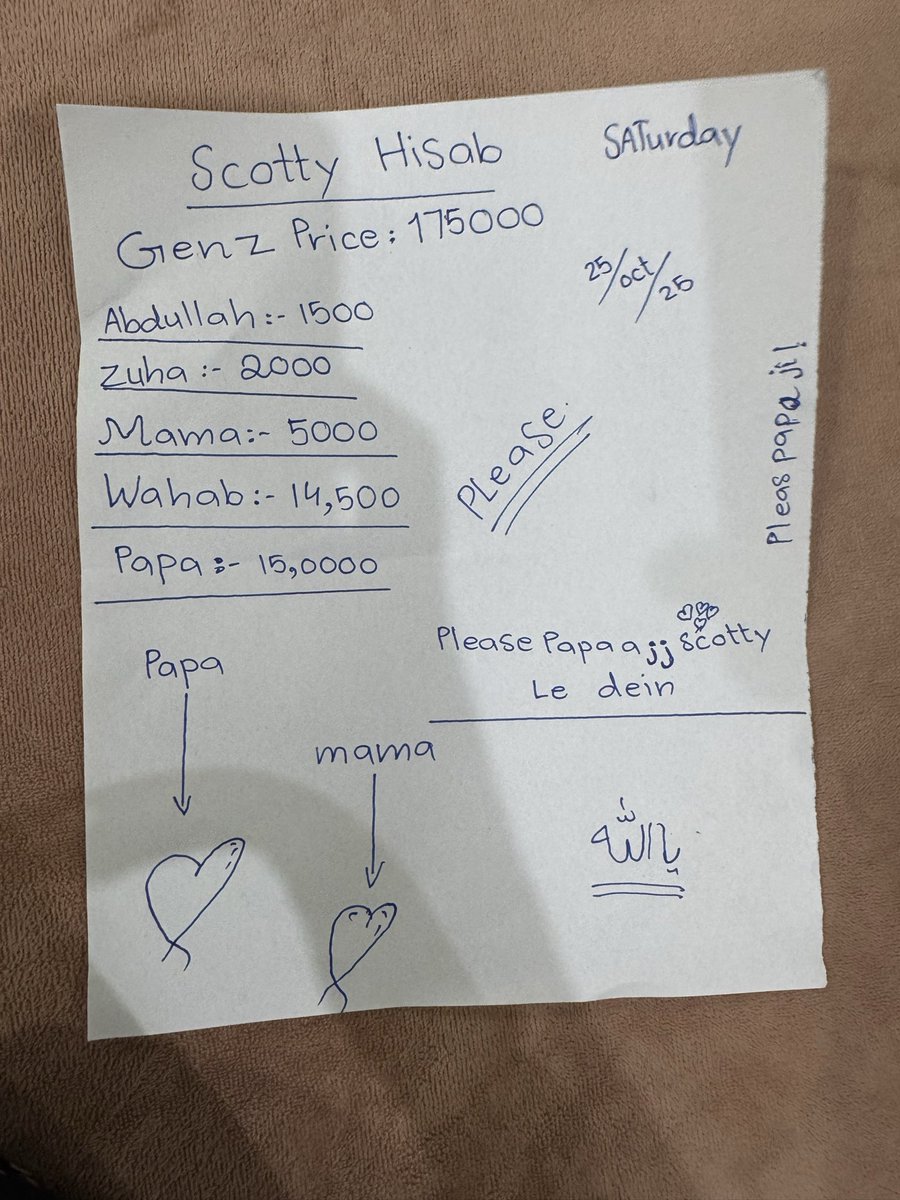 Scotty Hisab
SATurday
Genz Price: 175000
25/oct/25
Abdullah:- 1500
Zuha:- 2000
Mama:- 5000
Wahab:- 14,500
Papa:- 15,0000
PLease.
Pleas papa ji!
Please Papa ajj scotty
Le dein
Papa
mama
یااللہ